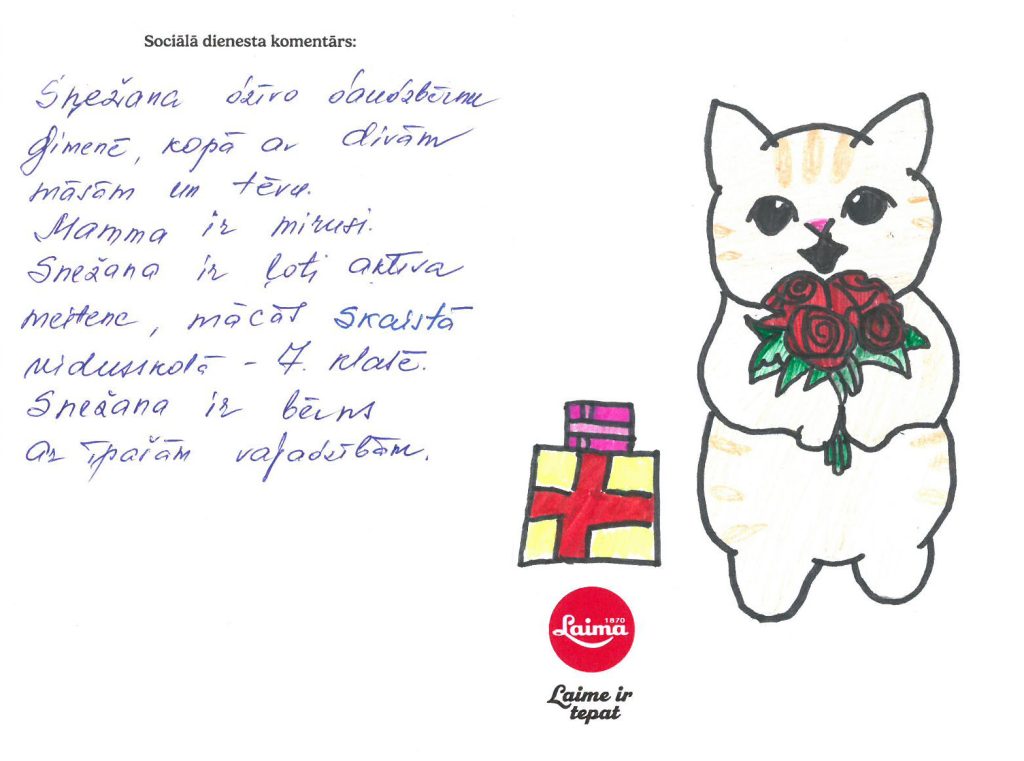 Sociālā dienesta komentārs:
Sņežana dzīvo daudzbērnu
ģimenē, kopā ar divām
māsām un tēvu.
Mamma ir mirusi.
Snežana ir ļoti aktīva
meitene, mācās Skaistā
vidusskolā - 7. klasē.
Snežana ir bērns
ar īpašām vajadzībām.
Laima
1870
Laime ir
tepat